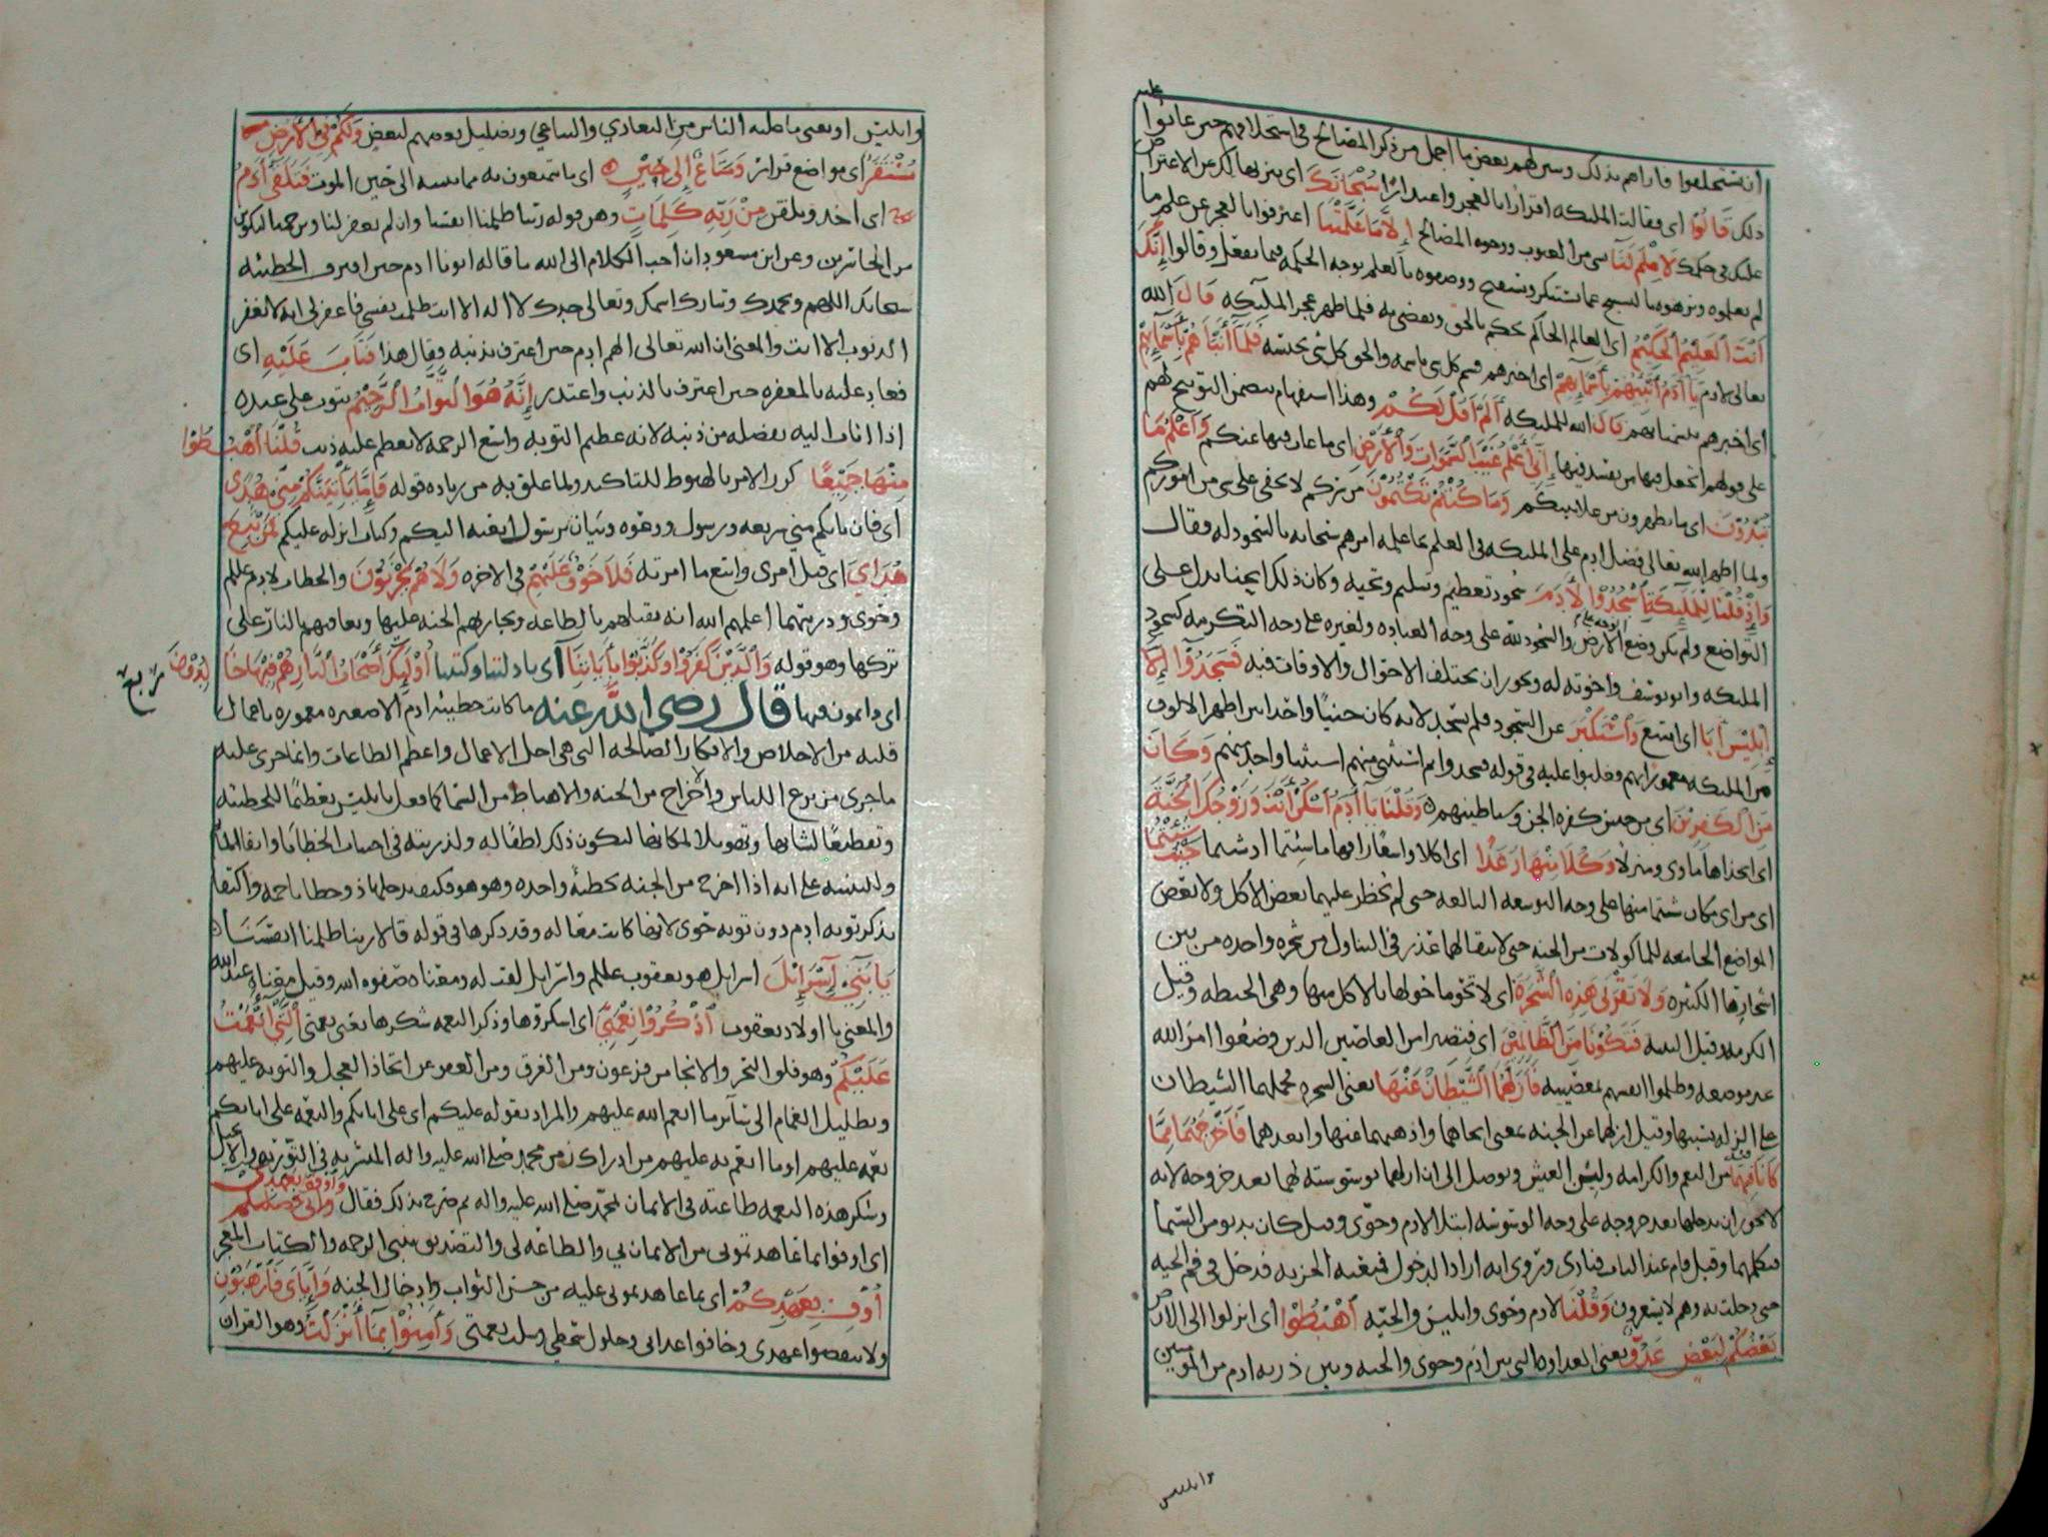 عليه
ان يستخلفوا فاراهم بذلك وبين لهم بعض ما اجمل من ذكر المصالح في استخلافهم حين عابوا
ذلك قَالُوا اى فقالت المليكه اقرارًا بالعجز واعتذارًا سُبْحَانَكَ اى ننزيهالك عن الاعتراض
عليك في حكمك لَا عِلْمَ لَنَا من الغيوب ووجوه المصالح إِلَّا مَا عَلَّمْتَنَا اعترفوا بالعجز عن علم ما
لم يعلموه ونزهوه بالتسبيح عما يستنكر ويستقبح ووصفوه بالعلم بوجه الحكمه فيما يفعل وقالوا إِنَّكَ
أَنْتَ الْعَلِيْمُ الْحَكِيْمُ اى العالم الحاكم يحكم بالحق ويقضي به فلما ظهر عجز المليكه قَالَ الله
تعالى لادم يَا آدَمُ أَنْبِئْهُمْ بِأَسْمَائِهِمْ اى اخبرهم فسم كل شى باسمه والحق كل شى بجنسه فَلَمَّا أَنْبَأَهُمْ بِأَسْمَائِهِمْ
اى اخبرهم بتسمياتهم قَالَ الله للمليكه أَلَمْ أَقُلْ لَكُمْ وهذا استفهام يتضمن التوبيخ لهم
على قولهم اتجعل فيها من يفسد فيها إِنِّي أَعْلَمُ غَيْبَ السَّمَوَاتِ وَالْأَرْضِ اى ما غاب فيها عنكم وَأَعْلَمُ مَا
تُبْدُوْنَ اى ما تظهرون من علانيتكم وَمَا كُنْتُمْ تَكْتُمُوْنَ من سركم لا يخفى على شى من اموركم
ولما اظهر الله تعالى فضل ادم على المليكه في العلم بما علمه امرهم سبحانه بالسجود له فقال
وَإِذْ قُلْنَا لِلْمَلَئِكَةِ اسْجُدُوْا لِآدَمَ سجود تعظيم وتسليم وتحيه وكان ذلك ايحنا يدل على
التواضع ولم يكن وضع الوجه على الارض والسجود لله على وجه العباده ولغيره على وجه التكرمه كسجود
المليكه وابو يوسف واخوته له ويجوز ان يختلف الاحوال والاوقات فيه فَسَجَدُوْا إِلَّا
إِبْلِيْسَ أَبَى اى امتنع وَاسْتَكْبَرَ عن السجود فلم يسجد لانه كان جنيًا واحدا بين اظهر الالوف
من المليكه مغمورًا بهم وغلبوا عليه في قوله فسجدوا ثم استثنى منهم استثنا واحد منهم وَكَانَ
مِنَ الْكَفِرِيْنَ اى من جنس كفره الجن وشياطينهم وَقُلْنَا يَا آدَمُ اسْكُنْ أَنْتَ وَزَوْجُكَ الْجَنَّةَ
اى اتخذاها ماوى ومنزلا وَكُلَا مِنْهَا رَغَدًا اى اكلا واسعًا رافها ما شئتما اذ شئتما حَيْثُ شِئْتُمَا
اى من اى مكان شئتما منها على وجه التوسعه البالغه حتى لم يحظر عليهما بعض الاكل ولا بعض
المواضع الجامعه للماكولات من الجنه حتى لا يبقا لهما عذر في التناول من شجره واحده من بين
اشجارها الكثيره وَلَا تَقْرَبَا هَذِهِ الشَّجَرَةَ اى لا تحوما حولها بالاكل منها وهى الحنطه وقيل
الكرمه وقيل التينه فَتَكُوْنَا مِنَ الظَّالِمِيْنَ اى فتصيرا من العاصين الذين وضعوا امر الله
غير موضعه وظلموا انفسهم بمعصيته فَأَزَلَّهُمَا الشَّيْطَانُ عَنْهَا يعنى الشجره فحملهما الشيطان
على الزله بسببها وقيل ازلهما عن الجنه بمعنى انحاهما واذهبهما عنها وابعدهما فَأَخْرَجَهُمَا مِمَّا
كَانَا فِيْهِ من النعم والكرامه ولين العيش وتوصل الى ان ازلهما بوسوسته لهما بعد خروجه لانه
لا يجوز ان يدخلها بعد خروجه على وجه الوسوسه ابتلا لادم وحوى وقيل كان يدنو من السما
فيكلمهما وقيل قام عند الباب فنادى وروى انه اراد الدخول فمنعته الخزنه فدخل في فم الحيه
حتى دخلت به وهم لا يشعرون وَقُلْنَا لادم وحوى وابليس والحيه اهْبِطُوْا اى انزلوا الى الارض
بَعْضُكُمْ لِبَعْضٍ عَدُوٌّ يعنى العداوه التى بين ادم وحوى والحيه وبين ذريه ادم من المومنين
وابليس
وابليس او يعنى ما عليه الناس من التعادي والتباغي وتضليل بعضهم لبعض وَلَكُمْ فِي الْأَرْضِ
مُسْتَقَرٌّ اى مواضع قرار وَمَتَاعٌ إِلَى حِيْنٍ اى ما تتمتعون به مما تنبته الى حين الموت فَتَلَقَّى آدَمُ
اى اخذ وتلقن مِنْ رَبِّهِ كَلِمَاتٍ وهى قوله ربنا ظلمنا انفسنا وان لم تغفر لنا وترحمنا لنكونن
من الخاسرين وعن ابن مسعود ان احب الكلام الى الله ما قاله ابونا ادم حين اقترف الخطيئه
سبحانك اللهم وبحمدك وتبارك اسمك وتعالى جدك لا اله الا انت ظلمت نفسي فاغفر لى انه لا يغفر
الذنوب الا انت والمعنى ان الله تعالى الهم ادم حين اعترف بذنبه وقال هذا فَتَابَ عَلَيْهِ اى
فعاد عليه بالمغفره حين اعترف بالذنب واعتذر إِنَّهُ هُوَ التَّوَّابُ الرَّحِيْمُ يتوب على عبده
اذا اناب اليه بفضله من ذنبه لانه عظيم التوبه واسع الرحمه لا يعظم عليه ذنب قُلْنَا اهْبِطُوْا
مِنْهَا جَمِيْعًا كرر الامر بالهبوط للتاكيد ولما علق به من زياده قوله فَإِمَّا يَأْتِيَنَّكُمْ مِنِّي هُدًى
اى فان ياتكم مني شريعه ورسول ودعوه وبيان برسول ابعثه اليكم وكتاب انزله عليكم فَمَنْ تَبِعَ
هُدَايَ اى قبل امرى واتبع ما امرته فَلَا خَوْفٌ عَلَيْهِمْ في الاخره وَلَا هُمْ يَحْزَنُوْنَ والخطاب لادم عليلم
وحوى وذريتهما اعلمهم الله انه يبتليهم بالطاعه ويجازيهم الجنه عليها ويعاقبهم بالنار على
تركها وهو قوله وَالَّذِيْنَ كَفَرُوْا وَكَذَّبُوْا بِآيَاتِنَا اى بادلتنا وكتبنا أُوْلَئِكَ أَصْحَابُ النَّارِ هُمْ فِيْهَا خَالِدُوْنَ ربع
اى دايمون فيها قال رضي الله عنه ما كانت خطيئه ادم الا صغيره مغموره باعمال
قلبه من الاخلاص والافكار الصالحه التى هى اجل الاعمال واعظم الطاعات وانما جرى عليه
ماجرى من نزع اللباس والاخراج من الجنه والاهباط من السما كما فعل بابليس تعظيمًا للخطيئه
وتفظيعًا لشانها وتهويلا لمكانها ليكون ذلك لطفًا له ولذريته في اجتناب الخطايا واتقا الماثم
وللتنبيه على انه اذا اخرج من الجنه بخطيئه واحده وهو هو فكيف يدخلها ذو خطايا جمه واكتفا
بذكر توبه ادم دون توبه حوى لانها كانت تبعًا له وقد ذكرها في قوله قالا ربنا ظلمنا انفسنا
يَا بَنِي إِسْرَائِيْلَ اسرايل هو يعقوب عليلم واسرايل لقب له ومعناه صفوه الله وقيل معناه عبد الله
والمعنى يا اولاد يعقوب اذْكُرُوْا نِعْمَتِيَ اى اشكروها وذكر النعمه شكرها يعنى نعمتى الَّتِي أَنْعَمْتُ
عَلَيْكُمْ وهو فلق البحر والانجا من فرعون ومن الغرق ومن العفو عن اتخاذ العجل والتوبه عليهم
وتظليل الغمام الى سائر ما انعم الله عليهم والمراد بقوله عليكم اى على ابائكم والنعمه على ابائكم
نعمه عليهم او ما انعم به عليهم من ادراك زمن محمد صلى الله عليه واله المبشر به في التوريه والانجيل
وشكر هذه النعمه طاعته في الايمان بمحمد صلى الله عليه واله ثم صرح بذلك فقال وَأَوْفُوا بِعَهْدِي
اى اوفوا بما عاهدتمونى من الايمان بي والطاعه لى والتصديق بنبى الرحمه والكتاب المعجز
أُوْفِ بِعَهْدِكُمْ اى بما عاهدتمونى عليه من حسن الثواب وادخال الجنه وَإِيَّايَ فَارْهَبُوْنِ
ولا تنقضوا عهدى وخافوا عذابى وحلول سخطي وسلب نعمتى وَآمِنُوْا بِمَا أَنْزَلْتُ وهو القران